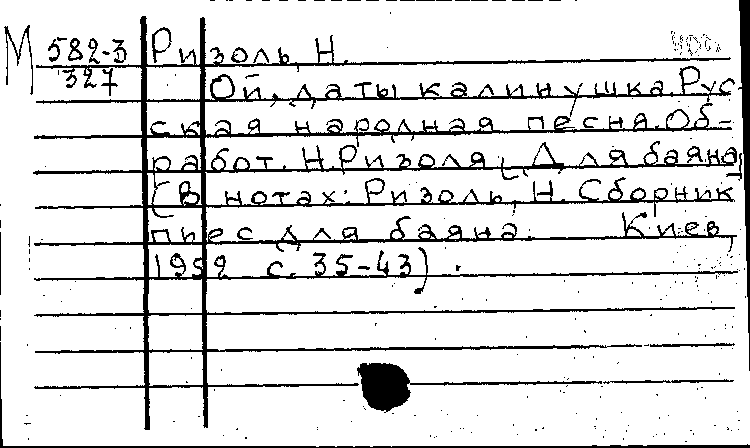 М 582-3 Ризоль, Н.
327 Ой, да ты калинушка. Рус-
ская народная песня. Об-
работ. Н. Ризоля [Для баяна]
(В нотах: Ризоль, Н. Сборник
пьес для баяна. Киев,
1952 с. 35-43).